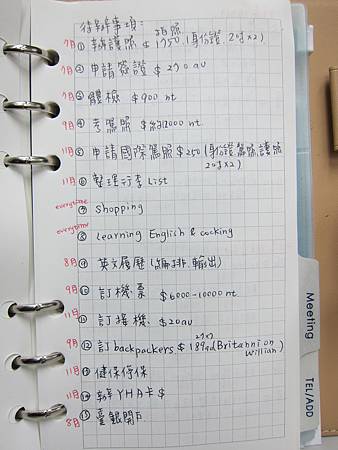 待辦事項:
7月 ① 辦護照 $1750 (身份證, 2吋×2)
拍照
7月 ② 申請簽證 $270au
7月 ③ 體檢 $900 nt
9月 ④ 考駕照 $約12000 nt
11月 ⑤ 申請國際駕照 $250 (身份證, 駕照, 護照
2吋×2)
11月 ⑥ 整理行李 List
everytime ⑦ shopping
everytime ⑧ Learning English & cooking
8月 ⑨ 英文履歷 (編排、輸出)
9月 ⑩ 訂機票 $6000-10000 nt
11月 ⑪ 訂接機 $20au
9月 ⑫ 訂backpackers $189ad(Britannion
Willian)
11月 ⑬ 健保停保
11月 ⑭ 辦YHA卡 $
8月 ⑮ 臺銀開戶
Meeting
TEL/ADD